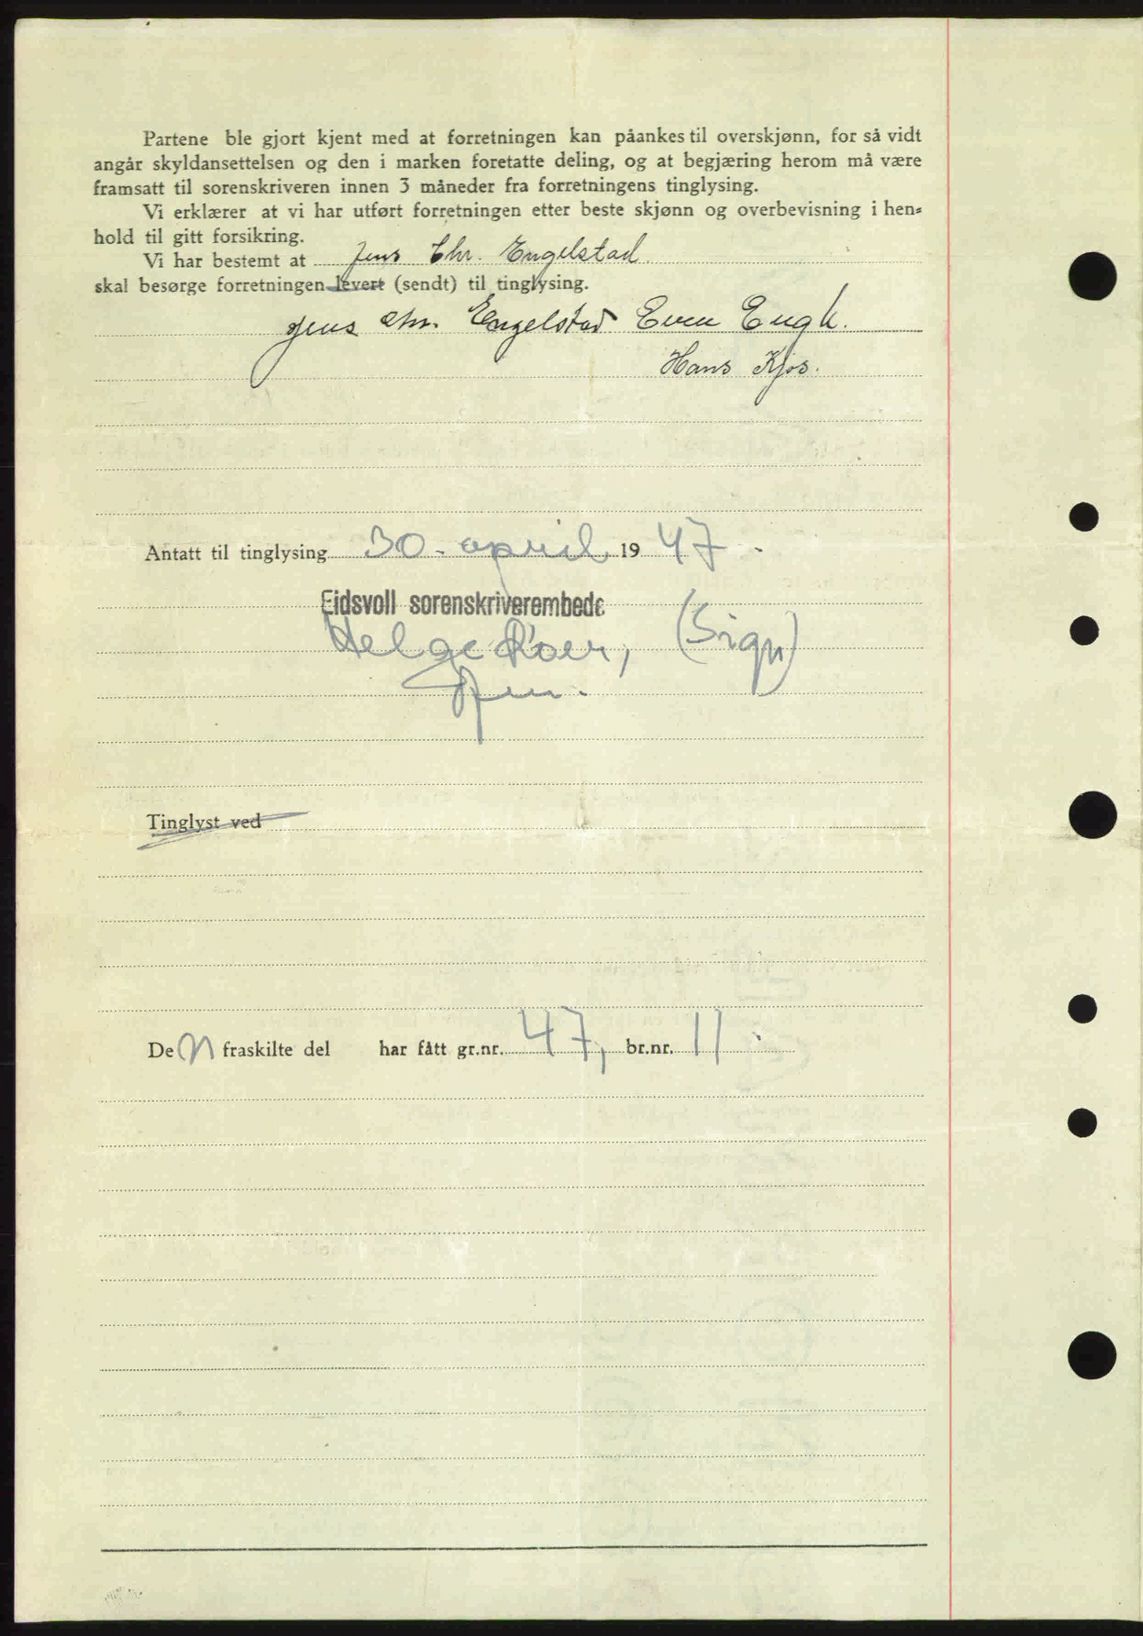 Partene ble gjort kjent med at forretningen kan påankes til overskjønn, for så vidt
angår skyldansettelsen og den i marken foretatte deling, og at begjæring herom må være
framsatt til sorenskriveren innen 3 måneder fra forretningens tinglysing.
Vi erklærer at vi har utført forretningen etter beste skjønn og overbevisning i hen-
hold til gitt forsikring.
Vi har bestemt at Jens Chr. Engelstad
skal besørge forretningen levert (sendt) til tinglysing.
Jens Chr. Engelstad Even Engh.
Hans Kjos.
Antatt til tinglysing 30. april 1947.
Eidsvoll sorenskriverembede
Helge Roer, (Sign)
Tinglyst ved
Den fraskilte del har fått gr.nr. 47, br.nr. 11.